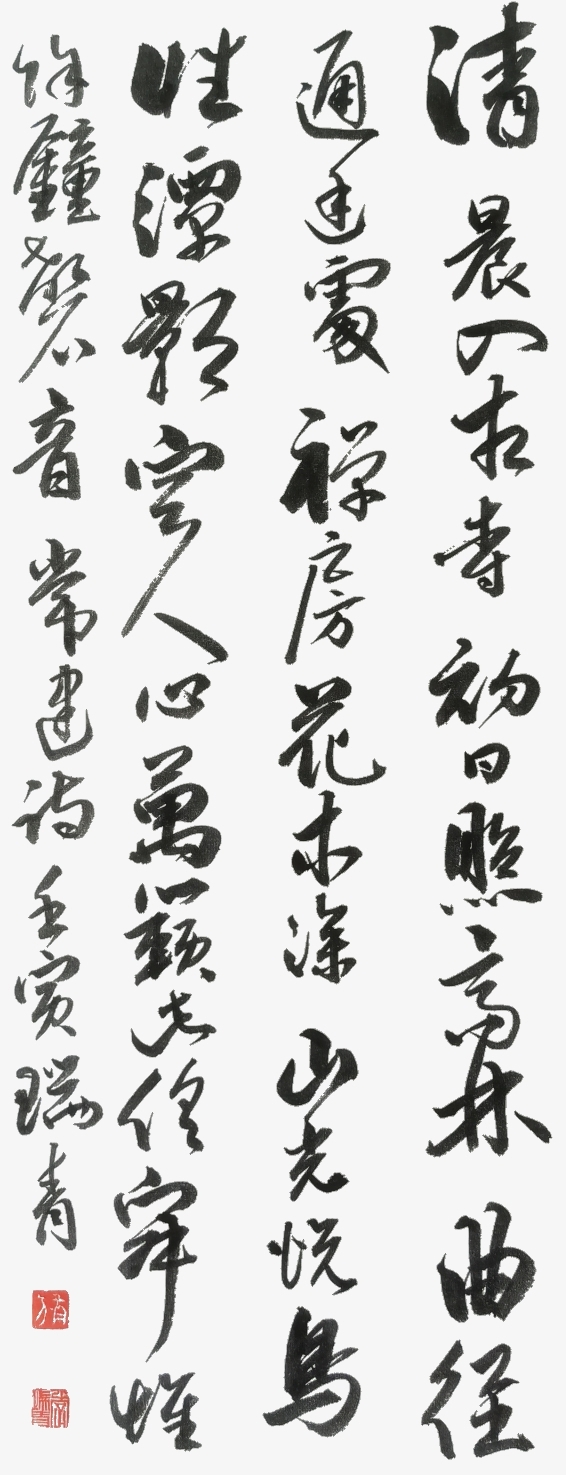 清晨入古寺初日照高林曲徑
通幽處禪房花木深山光悦鳥
性潭影空人心萬籟此俱寂惟
餘鐘磬音常建詩壬寅瑞青